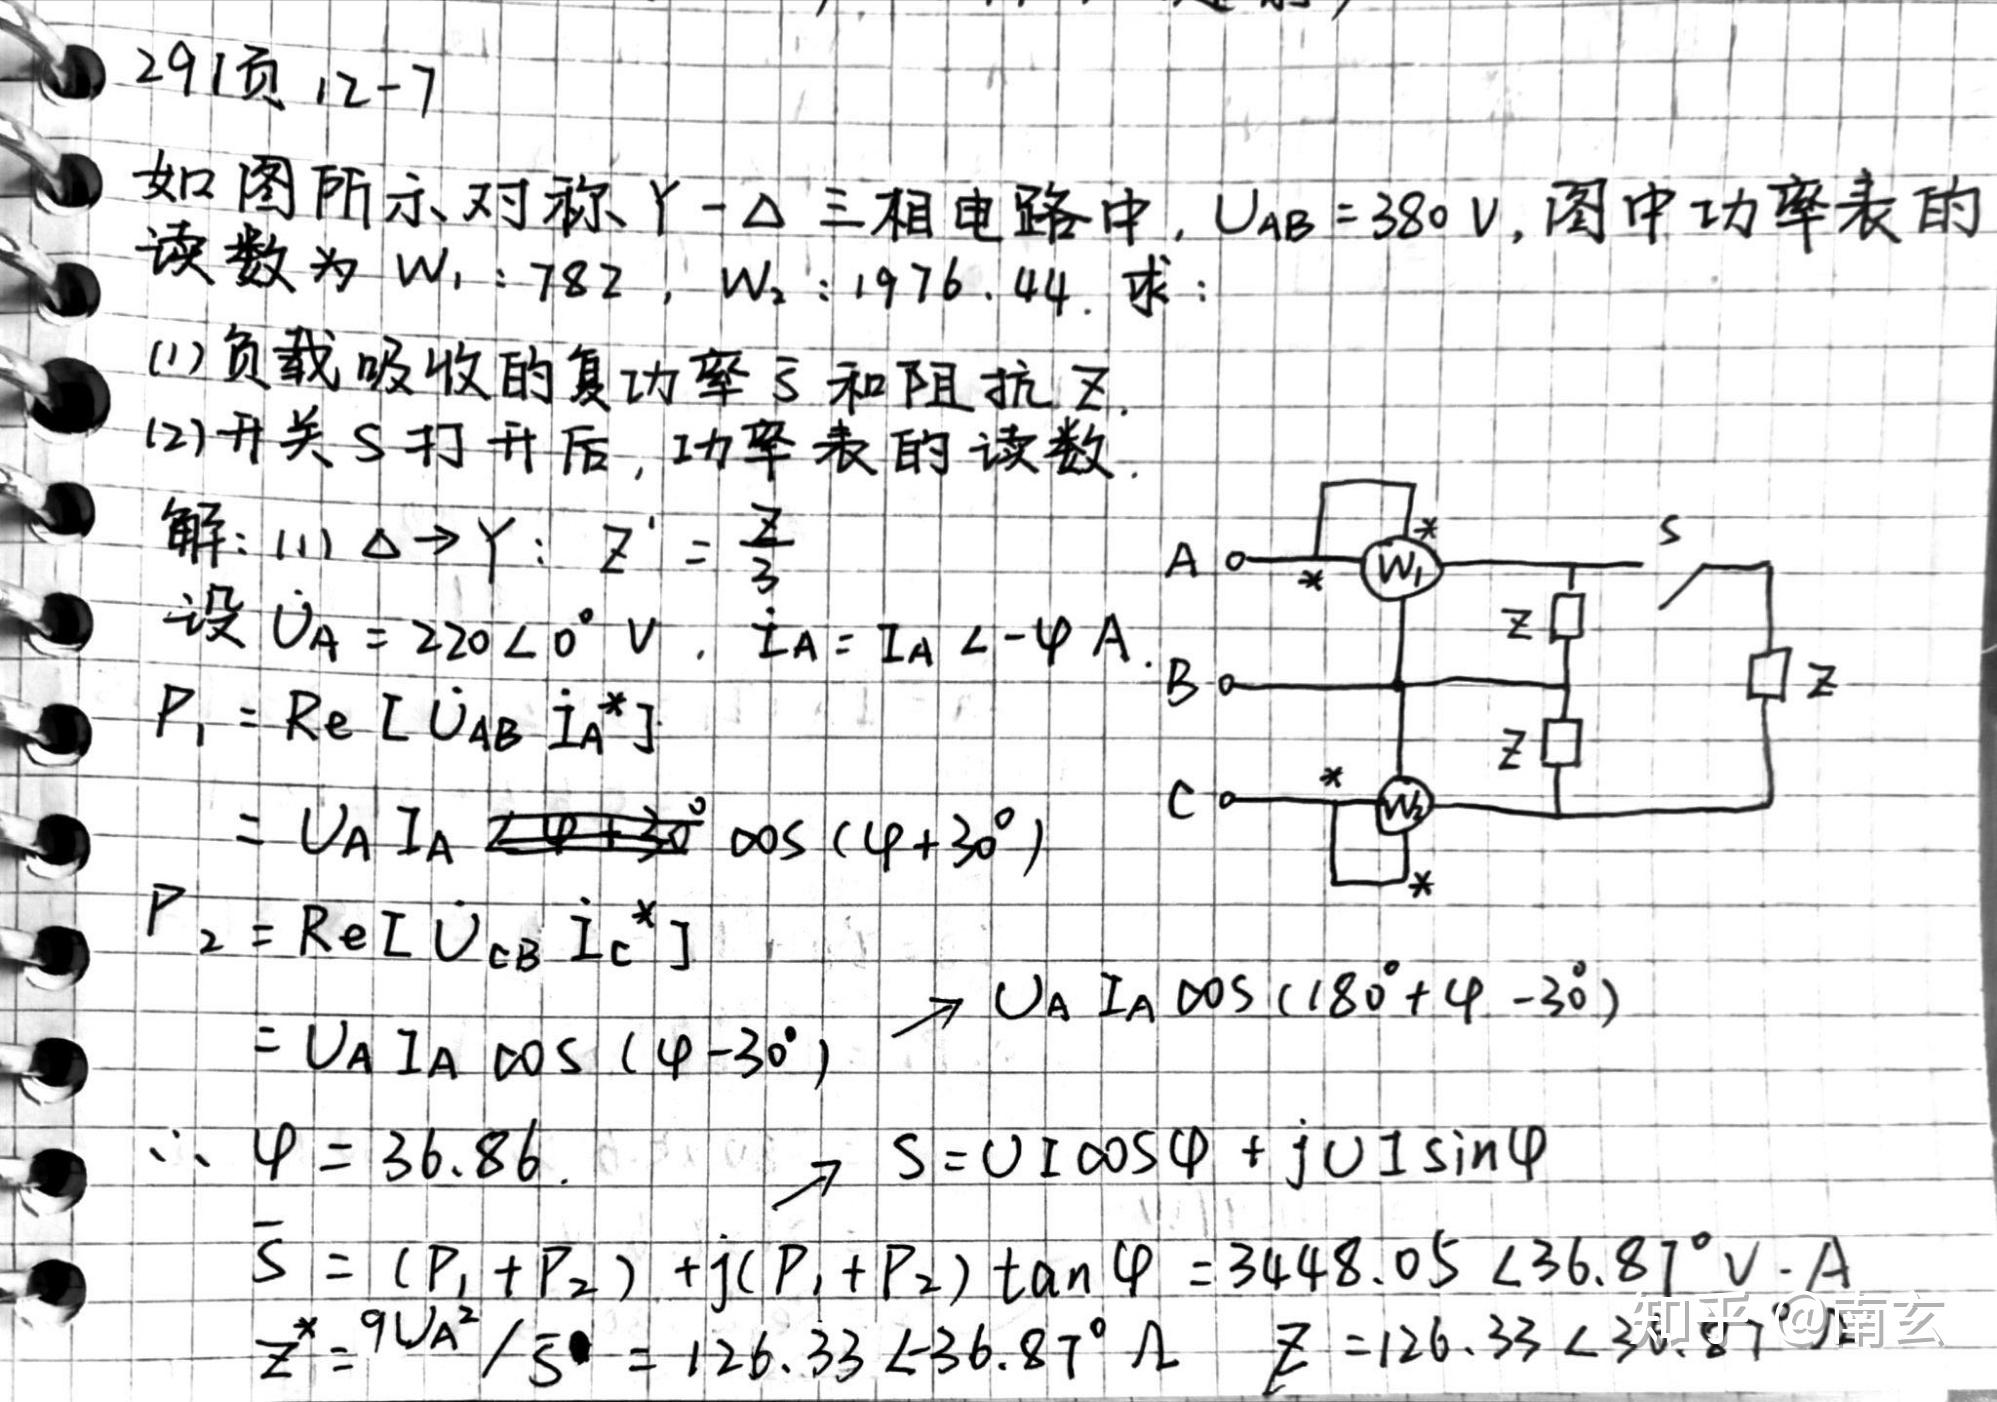 291页 12-7
如图所示对称Y-Δ三相电路中，UAB=380V，图中功率表的
读数为 W₁:782，W₂:1976.44. 求：
(1)负载吸收的复功率S̄和阻抗Z.
(2)开关S打开后，功率表的读数.
解：(1) Δ→Y： Z' = Z/3
设 U̇A = 220∠0° V . İA = IA∠-φ A.
P₁ = Re[U̇AB İA*]
= UA IA cos(φ+30°)
P₂ = Re[U̇CB İC*]
= UA IA cos(φ-30°) → UA IA cos(180°+φ-30°)
∴ φ = 36.86. → S=UIcosφ + jUIsinφ
S̄ = (P₁+P₂)+j(P₁+P₂)tanφ = 3448.05∠36.87° V·A
Z* = 9UA²/S̄ = 126.33∠-36.87° Ω Z=126.33∠36.87° Ω
S
A * * W₁
Z
B Z
Z
C * W₂
*
知乎 @南玄